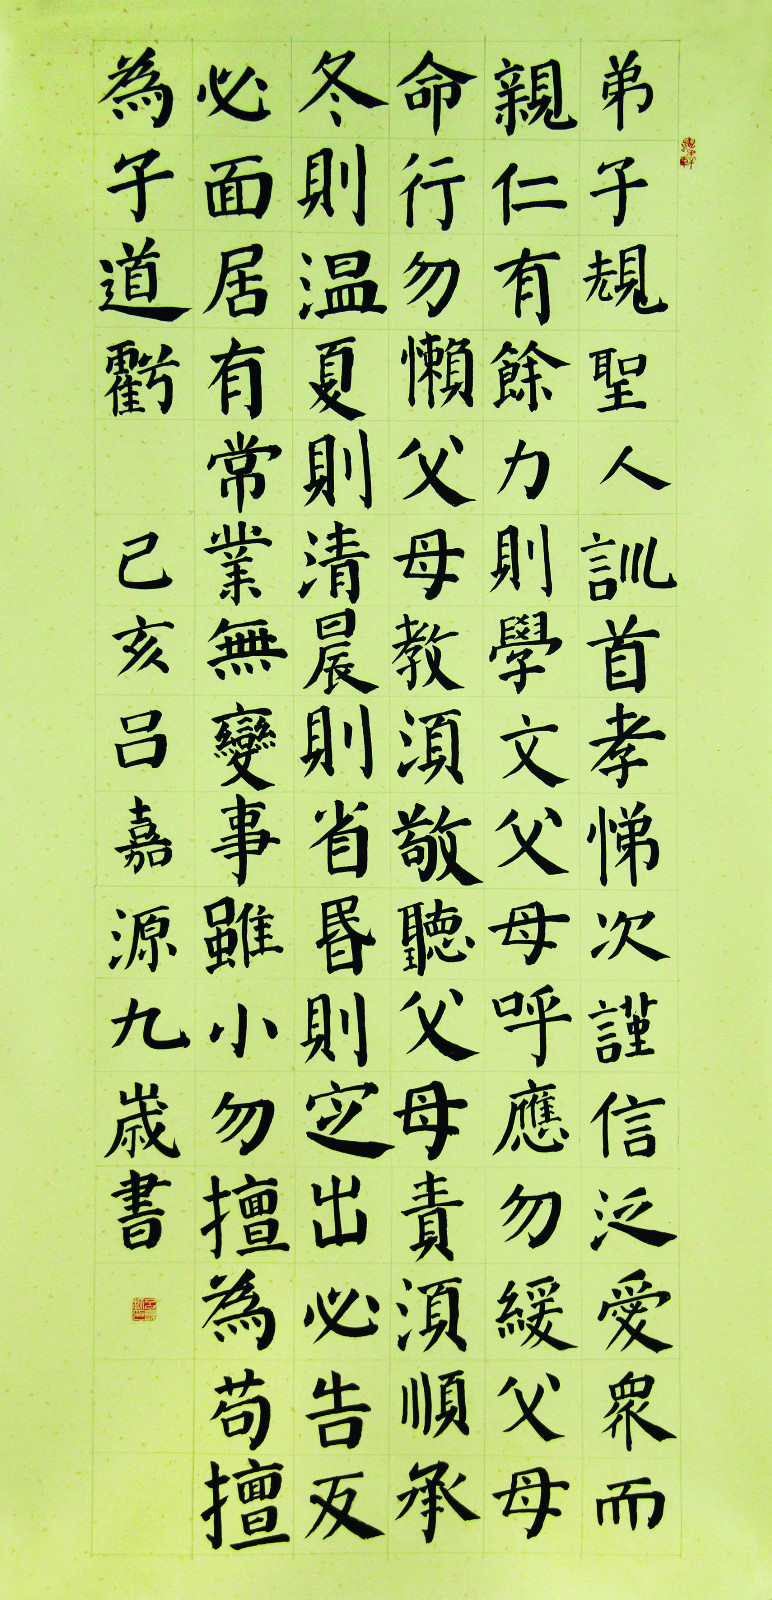 弟子規聖人訓首孝悌次謹信泛愛衆而
親仁有餘力則學文父母呼應勿緩父母
命行勿懶父母教須敬聽父母責須順承
冬則温夏則清晨則省昏則定出必告反
必面居有常業無變事雖小勿擅為苟擅
為子道虧
己亥吕嘉源九歲書